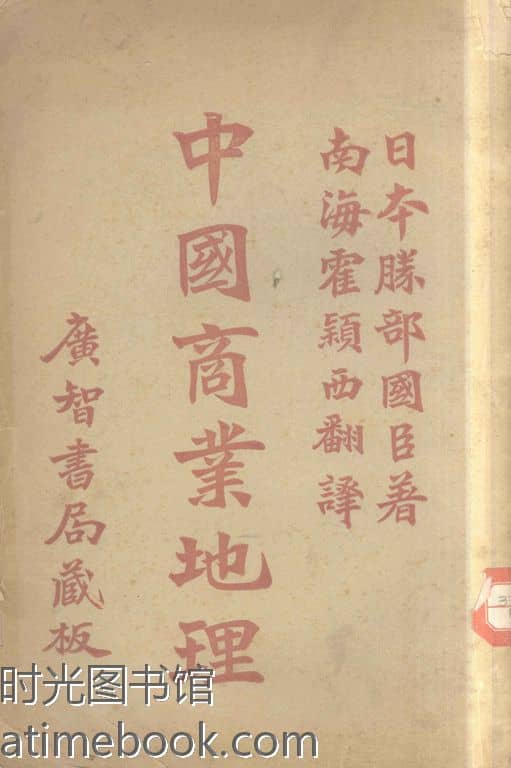 日本勝部國臣著
南海霍穎西翻譯
中國商業地理
廣智書局藏板
时光图书馆
atimebook.com